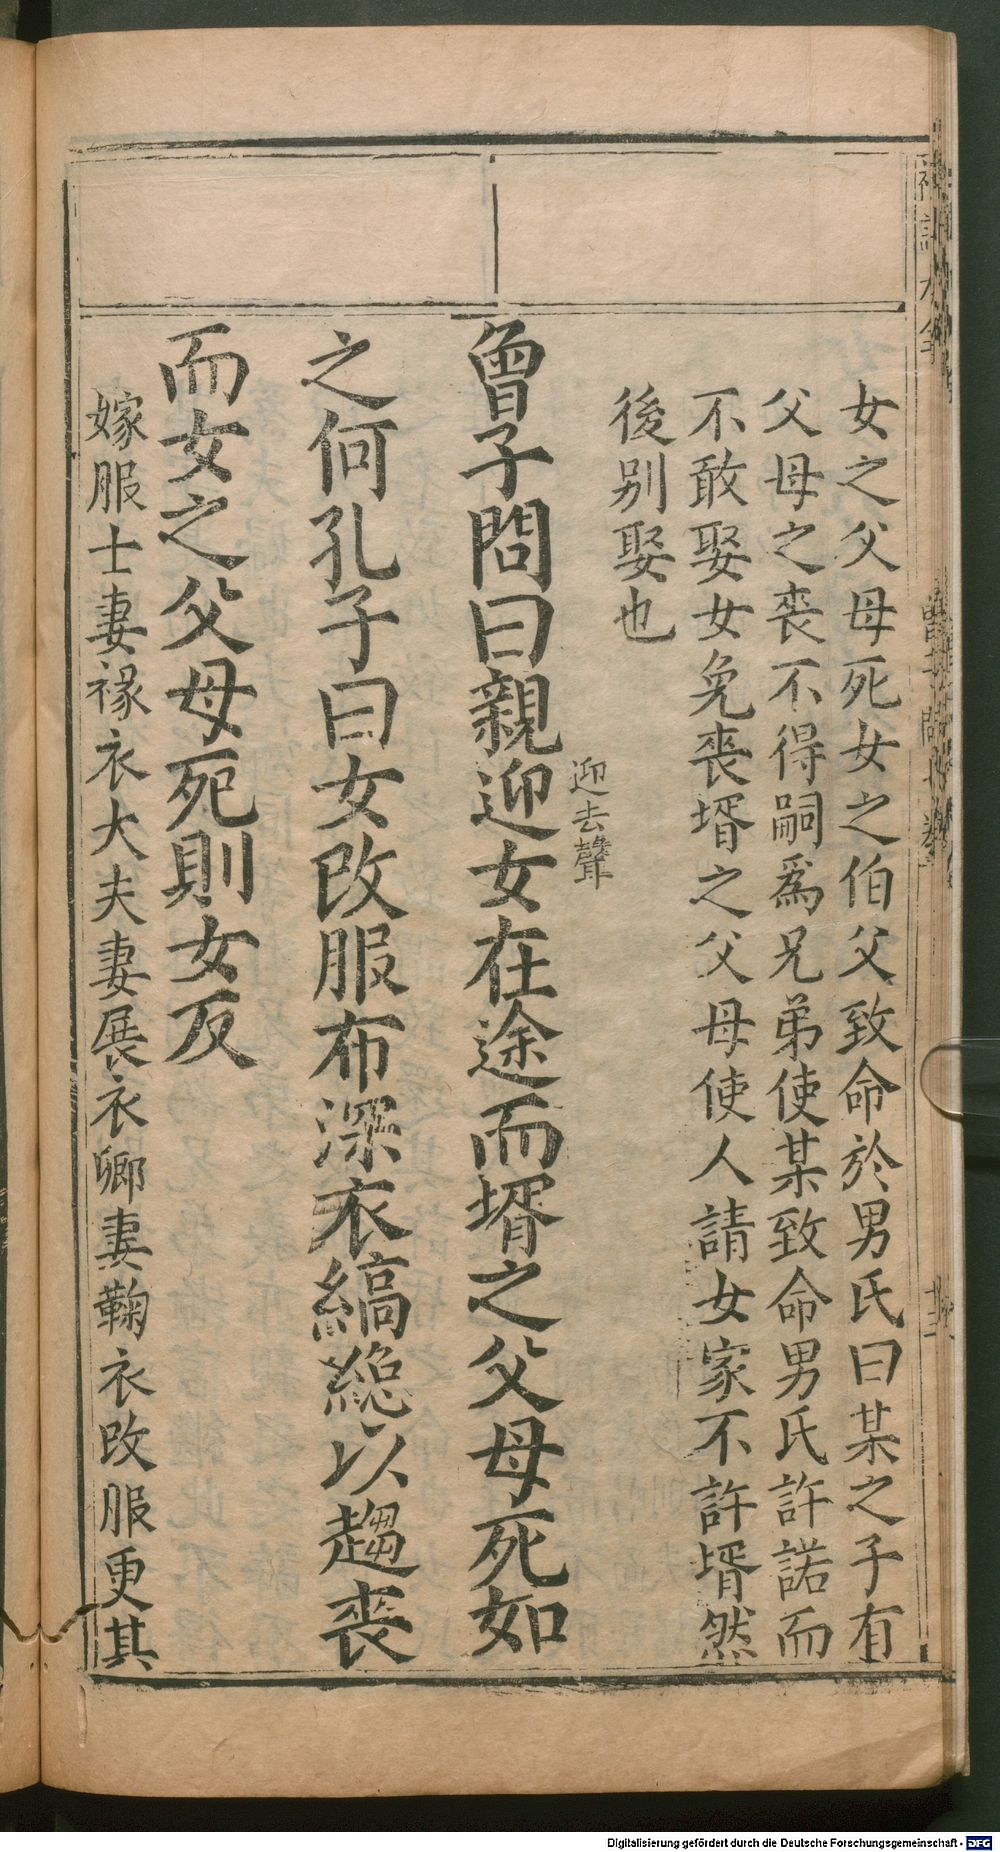 女之父母死女之伯父致命於男氏曰某之子有
父母之喪不得嗣爲兄弟使某致命男氏許諾而
不敢娶女免喪壻之父母使人請女家不許壻然
後別娶也
曾子問曰親迎女在途而壻之父母死如
迎去聲
之何孔子曰女改服布深衣縞總以趨喪
而女之父母死則女反
嫁服士妻褖衣大夫妻展衣卿妻鞠衣改服更其
Digitalisierung gefördert durch die Deutsche Forschungsgemeinschaft - DFG